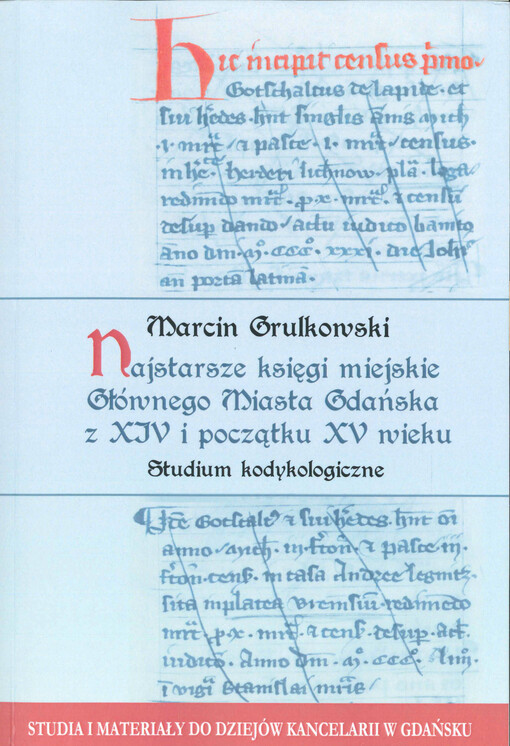 Hic incipit census pͥmo
Gotschalcus de lapide et
sui h̅edes h̅nt singlis a̅nis mich
i mrc̅ pasce i mrc̅ census
in h̅e herderi lichnow pla̅
redimendo mrc̅ p x mrc̅ censu̅
desup dando actu̅ iudico ba̅nito
a̅no dm̅ mͦ cccͦ xxxi die Joh̅
an porta latina̅
Marcin Grulkowski
Najstarsze księgi miejskie
Głównego Miasta Gdańska
z XIV i początku XV wieku
Studium kodykologiczne
Gotscalc̅ sui h̅edes h̅nt
anno mich iij fr̅ton pasce iij
fr̅ton cens in casa Andree legnitz
sita in platea redimendo
mrc̅ p x mrc̅ cens desup act̅
iudico̅ Anno dm̅ mͦ cccͦ
i̅ vigi̅ Stanislai mr̅is
STUDIA I MATERIAŁY DO DZIEJÓW KANCELARII W GDAŃSKU